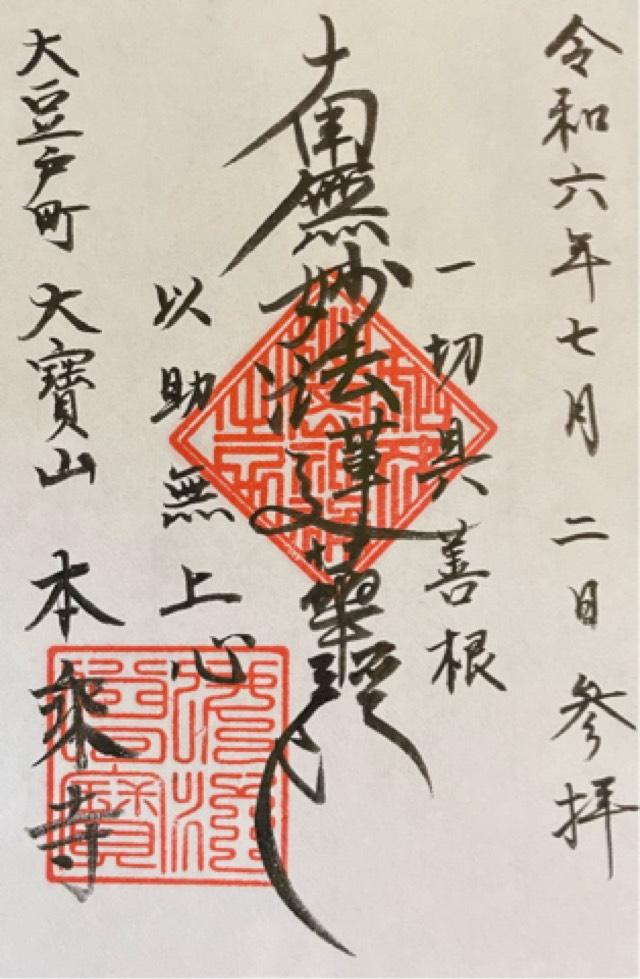 令和六年七月二日参拝
一切具善根
南無妙法蓮華経
以助無上心
大豆戸町 大寳山 本乗寺